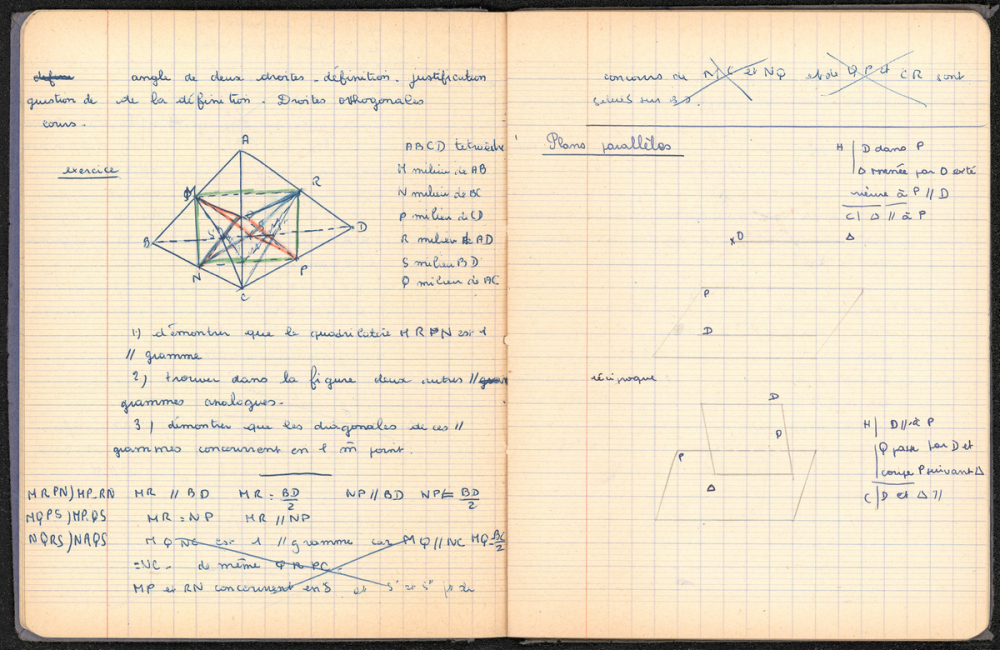 angle de deux droites - définition. justification
question de de la définition. Droites orthogonales
cours.
exercice
A
M
R
B
D
N
P
C
ABCD tetraèdre
M milieu de AB
N milieu de BC
P milieu de CD
R milieu de AD
S milieu BD
Q milieu de AC
1) démontrer que le quadrilatère MRPN est 1
// gramme
2) trouver dans la figure deux autres //
grammes analogues.
3) démontrer que les diagonales de ces //
grammes concourent en 1 m̄ point.
MRPN) MP-RN MR // BD MR = BD/2 NP // BD NP = BD/2
MQPS) MP.QS MR = NP MR // NP
NQRS) NR QS MQ NC est 1 // gramme car MQ // NC MQ = BC/2
= NC. de même PC.
MP et RN concourent en S et
concours de et NQ et de QP et CR sont
situés sur
Plans parallèles
H | D dans P
Δ menée par O exté
rieure à P // D
C | Δ // à P
x O Δ
P
D
réciproque
D
P
Δ
H | D // à P
Q passe par D et
coupe P suivant Δ
C | D et Δ //